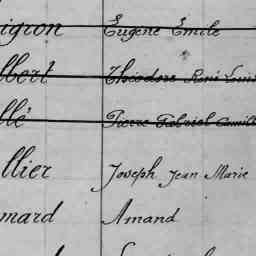 igron Eugène Emile
lbert Théodore René Louis
llé Pierre Gabriel Camille
llier Joseph Jean Marie
mard Amand